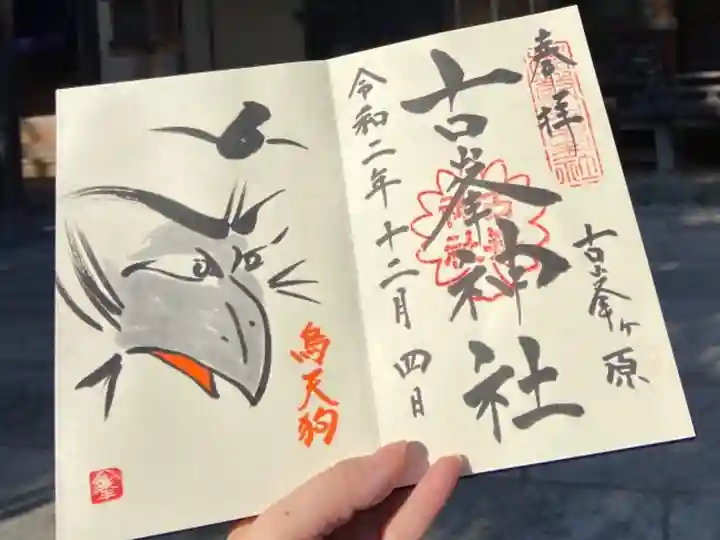 奉拝
古峯ヶ原
古峯神社
令和二年十二月四日
烏天狗